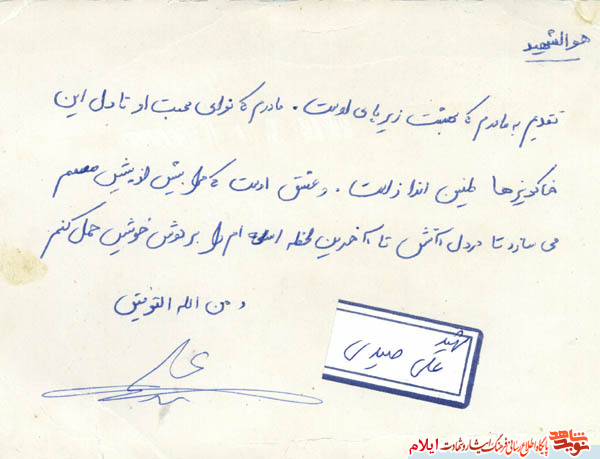 هو الشهید
تقدیم به مادرم که بهشت زیر پای اوست. مادرم که نوای محبت او تا دل این
خاکریزها طنین انداز است. و عشق اوست که مرا بیش از پیش مصمم
می سازد تا در دل آتش تا آخرین لحظه اسلحه ام را بر دوش خویش حمل کنم
و من الله التوفیق
شهید
علی صیدی
نوید شاهد
پایگاه اطلاع رسانی فرهنگ ایثار و شهادت ایلام